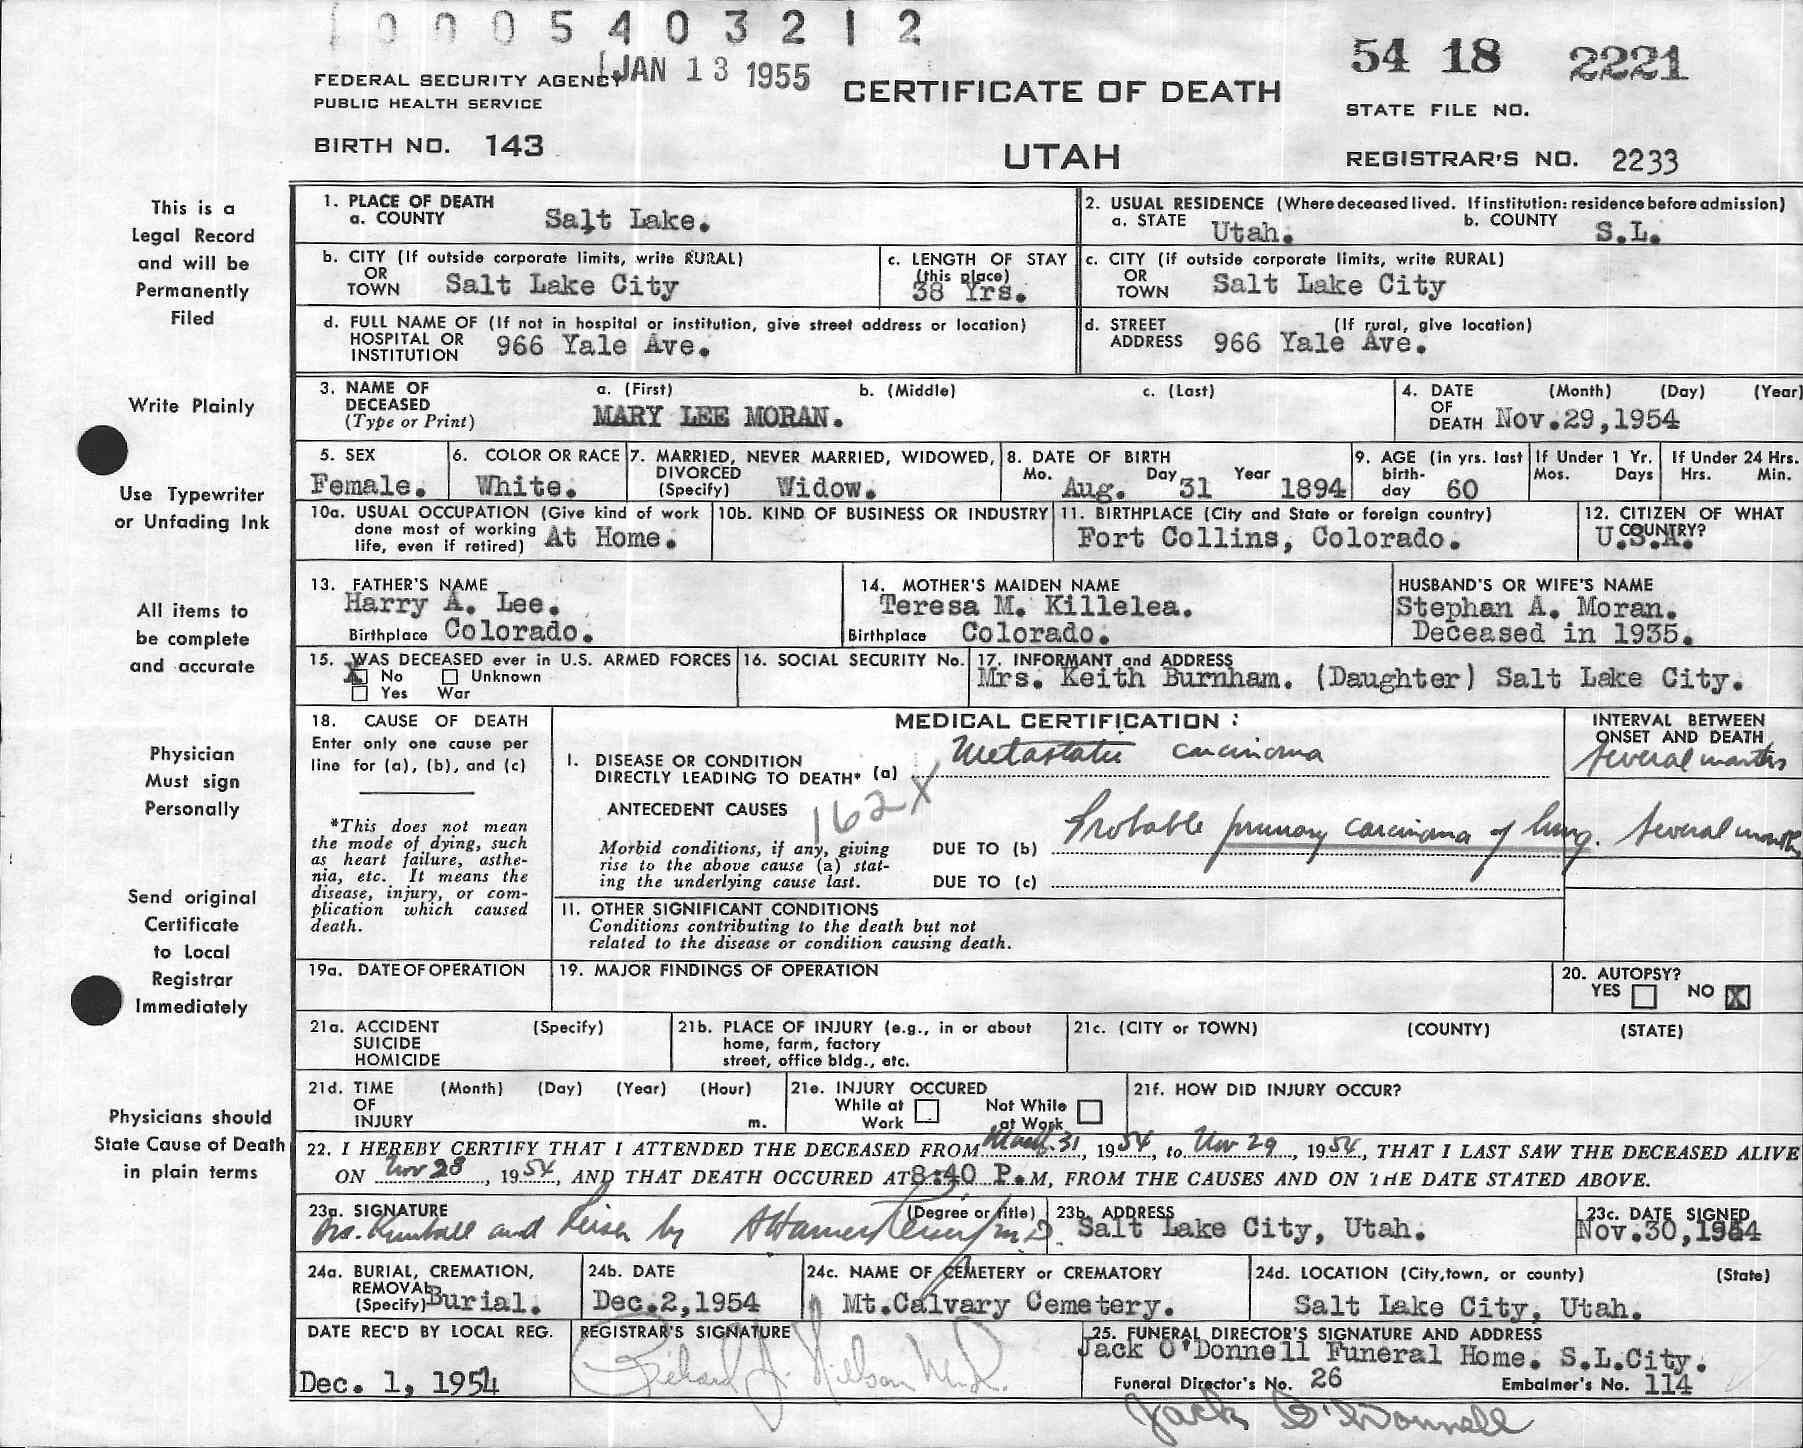 0005403212
JAN 13 1955
54 18 2221
FEDERAL SECURITY AGENCY
PUBLIC HEALTH SERVICE
CERTIFICATE OF DEATH
STATE FILE NO.
BIRTH NO. 143
UTAH
REGISTRAR'S NO. 2233
This is a
Legal Record
and will be
Permanently
Filed
Write Plainly
Use Typewriter
or Unfading Ink
All items to
be complete
and accurate
Physician
Must sign
Personally
Send original
Certificate
to Local
Registrar
Immediately
Physicians should
State Cause of Death
in plain terms
1. PLACE OF DEATH
a. COUNTY Salt Lake.
2. USUAL RESIDENCE (Where deceased lived. If institution: residence before admission)
a. STATE Utah. b. COUNTY S.L.
b. CITY (If outside corporate limits, write RURAL)
OR
TOWN Salt Lake City
c. LENGTH OF STAY
(this place)
38 Yrs.
c. CITY (if outside corporate limits, write RURAL)
OR
TOWN Salt Lake City
d. FULL NAME OF (If not in hospital or institution, give street address or location)
HOSPITAL OR
INSTITUTION 966 Yale Ave.
d. STREET (If rural, give location)
ADDRESS 966 Yale Ave.
3. NAME OF
DECEASED
(Type or Print)
a. (First) b. (Middle) c. (Last)
MARY LEE MORAN.
4. DATE (Month) (Day) (Year)
OF
DEATH Nov.29,1954
5. SEX
Female.
6. COLOR OR RACE
White.
7. MARRIED, NEVER MARRIED, WIDOWED,
DIVORCED
(Specify) Widow.
8. DATE OF BIRTH
Mo. Aug. Day 31 Year 1894
9. AGE (in yrs. last
birth-
day 60
If Under 1 Yr.
Mos. Days
If Under 24 Hrs.
Hrs. Min.
10a. USUAL OCCUPATION (Give kind of work
done most of working
life, even if retired) At Home.
10b. KIND OF BUSINESS OR INDUSTRY
11. BIRTHPLACE (City and State or foreign country)
Fort Collins, Colorado.
12. CITIZEN OF WHAT
COUNTRY?
U.S.A.
13. FATHER'S NAME
Harry A. Lee.
Birthplace Colorado.
14. MOTHER'S MAIDEN NAME
Teresa M. Killelea.
Birthplace Colorado.
HUSBAND'S OR WIFE'S NAME
Stephan A. Moran.
Deceased in 1935.
15. WAS DECEASED ever in U.S. ARMED FORCES
X No Unknown
Yes War
16. SOCIAL SECURITY No.
17. INFORMANT and ADDRESS
Mrs. Keith Burnham. (Daughter) Salt Lake City.
18. CAUSE OF DEATH
Enter only one cause per
line for (a), (b), and (c)
*This does not mean
the mode of dying, such
as heart failure, asthe-
nia, etc. It means the
disease, injury, or com-
plication which caused
death.
MEDICAL CERTIFICATION:
I. DISEASE OR CONDITION
DIRECTLY LEADING TO DEATH* (a) Metastatic carcinoma
INTERVAL BETWEEN
ONSET AND DEATH
several months
ANTECEDENT CAUSES
162X
Morbid conditions, if any, giving
rise to the above cause (a) stat-
ing the underlying cause last.
DUE TO (b) Probable primary carcinoma of lung. several months
DUE TO (c)
II. OTHER SIGNIFICANT CONDITIONS
Conditions contributing to the death but not
related to the disease or condition causing death.
19a. DATE OF OPERATION
19. MAJOR FINDINGS OF OPERATION
20. AUTOPSY?
YES NO X
21a. ACCIDENT (Specify)
SUICIDE
HOMICIDE
21b. PLACE OF INJURY (e.g., in or about
home, farm, factory
street, office bldg., etc.
21c. (CITY or TOWN) (COUNTY) (STATE)
21d. TIME (Month) (Day) (Year) (Hour)
OF
INJURY m.
21e. INJURY OCCURED
While at Work
Not While at Work
21f. HOW DID INJURY OCCUR?
22. I HEREBY CERTIFY THAT I ATTENDED THE DECEASED FROM March 31, 1954, to Nov 29, 1954, THAT I LAST SAW THE DECEASED ALIVE
ON Nov 28, 1954, AND THAT DEATH OCCURED AT 8:40 P.M, FROM THE CAUSES AND ON THE DATE STATED ABOVE.
23a. SIGNATURE (Degree or title)
Drs. Kimball and Reiser by M.D.
23b. ADDRESS
Salt Lake City, Utah.
23c. DATE SIGNED
Nov.30,1954
24a. BURIAL, CREMATION,
REMOVAL
(Specify) Burial.
24b. DATE
Dec.2,1954
24c. NAME OF CEMETERY or CREMATORY
Mt.Calvary Cemetery.
24d. LOCATION (City,town, or county) (State)
Salt Lake City, Utah.
DATE REC'D BY LOCAL REG.
Dec. 1, 1954
REGISTRAR'S SIGNATURE
Richard J. Nielson M.D.
25. FUNERAL DIRECTOR'S SIGNATURE AND ADDRESS
Jack O'Donnell Funeral Home. S.L.City.
Funeral Director's No. 26 Embalmer's No. 114
Jack O'Donnell